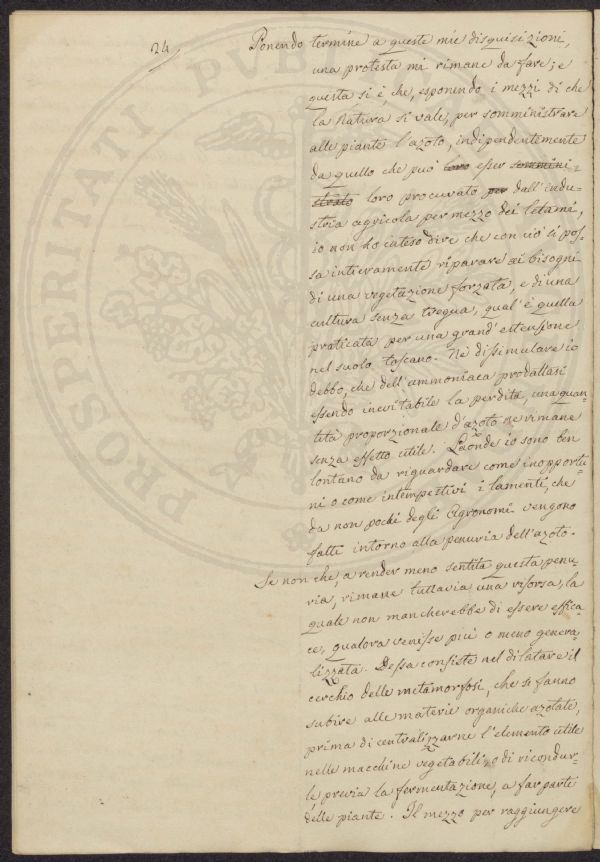 24
Ponendo termine a queste mie disquisizioni,
una protesta mi rimane da fare; e
questa si è, che, esponendo i mezzi di che
la Natura si vale, per somministrare
alle piante l'azoto, indipendentemente
da quello che può loro esser sommini-
strato loro procurato per dall'indu-
stria agricola per mezzo dei letami,
io non ho inteso dire che con ciò si pos-
sa intieramente riparare ai bisogni
di una vegetazione forzata, e di una
cultura senza tregua, qual'è quella
praticata per una grand'estensione
nel suolo toscano. Nè dissimulare io
debbo, che dell'ammoniaca prodottasi
essendo inevitabile la perdita, una quan-
tità proporzionale d'azoto ne rimane
senza effetto utile. Laonde io sono ben
lontano da riguardare come inopportu-
ni o come intempestivi i lamenti, che
da non pochi degli Agronomi vengono
fatti intorno alla penuria dell'azoto.
Se non che, a render meno sentita questa penu-
ria, rimane tuttavia una risorsa, la
quale non mancherebbe di essere effica-
ce, qualora venisse più o meno genera-
lizzata. Dessa consiste nel dilatare il
cerchio delle metamorfosi, che si fanno
subire alle materie organiche azotate,
prima di centralizzarne l'elemento utile
nelle macchine vegetabili, o di ricondur-
le previa la fermentazione, a far parte
delle piante. Il mezzo per raggiungere
PROSPERITATI PUB